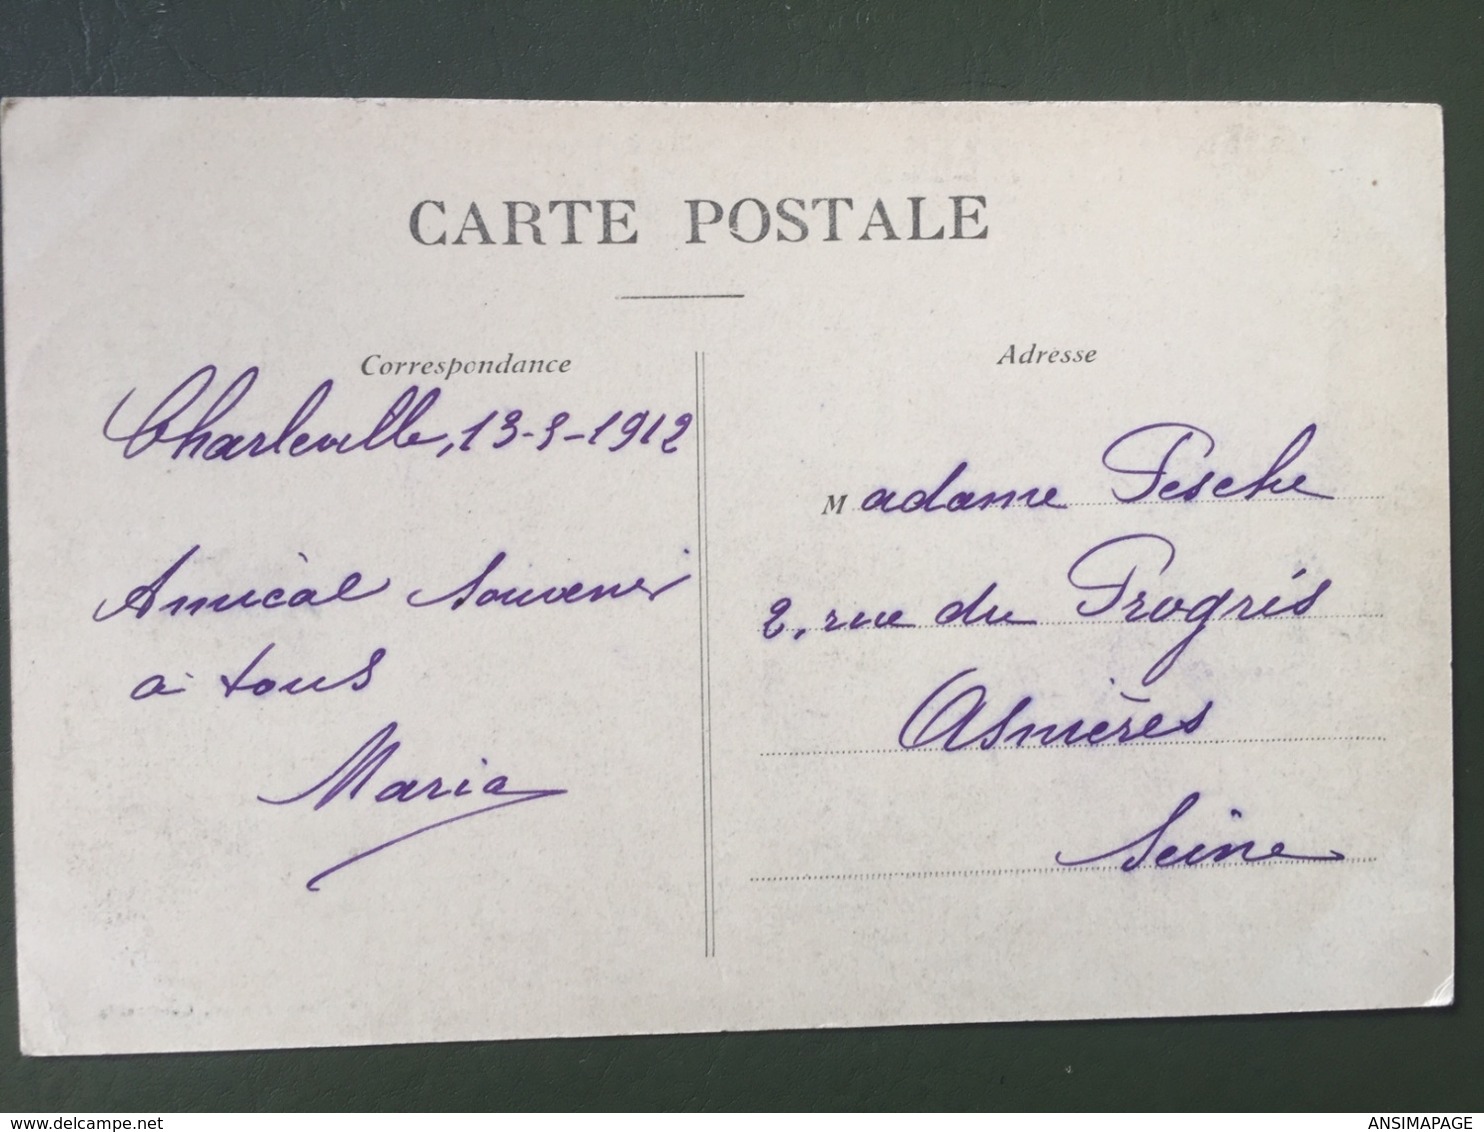 CARTE POSTALE
Correspondance
Charleville, 13-9-1912
Amical souvenir
à tous
Maria
Adresse
Madame Pesche
2, rue du Progrès
Asnières
Seine
www.delcampe.net
ANSIMAPAGE